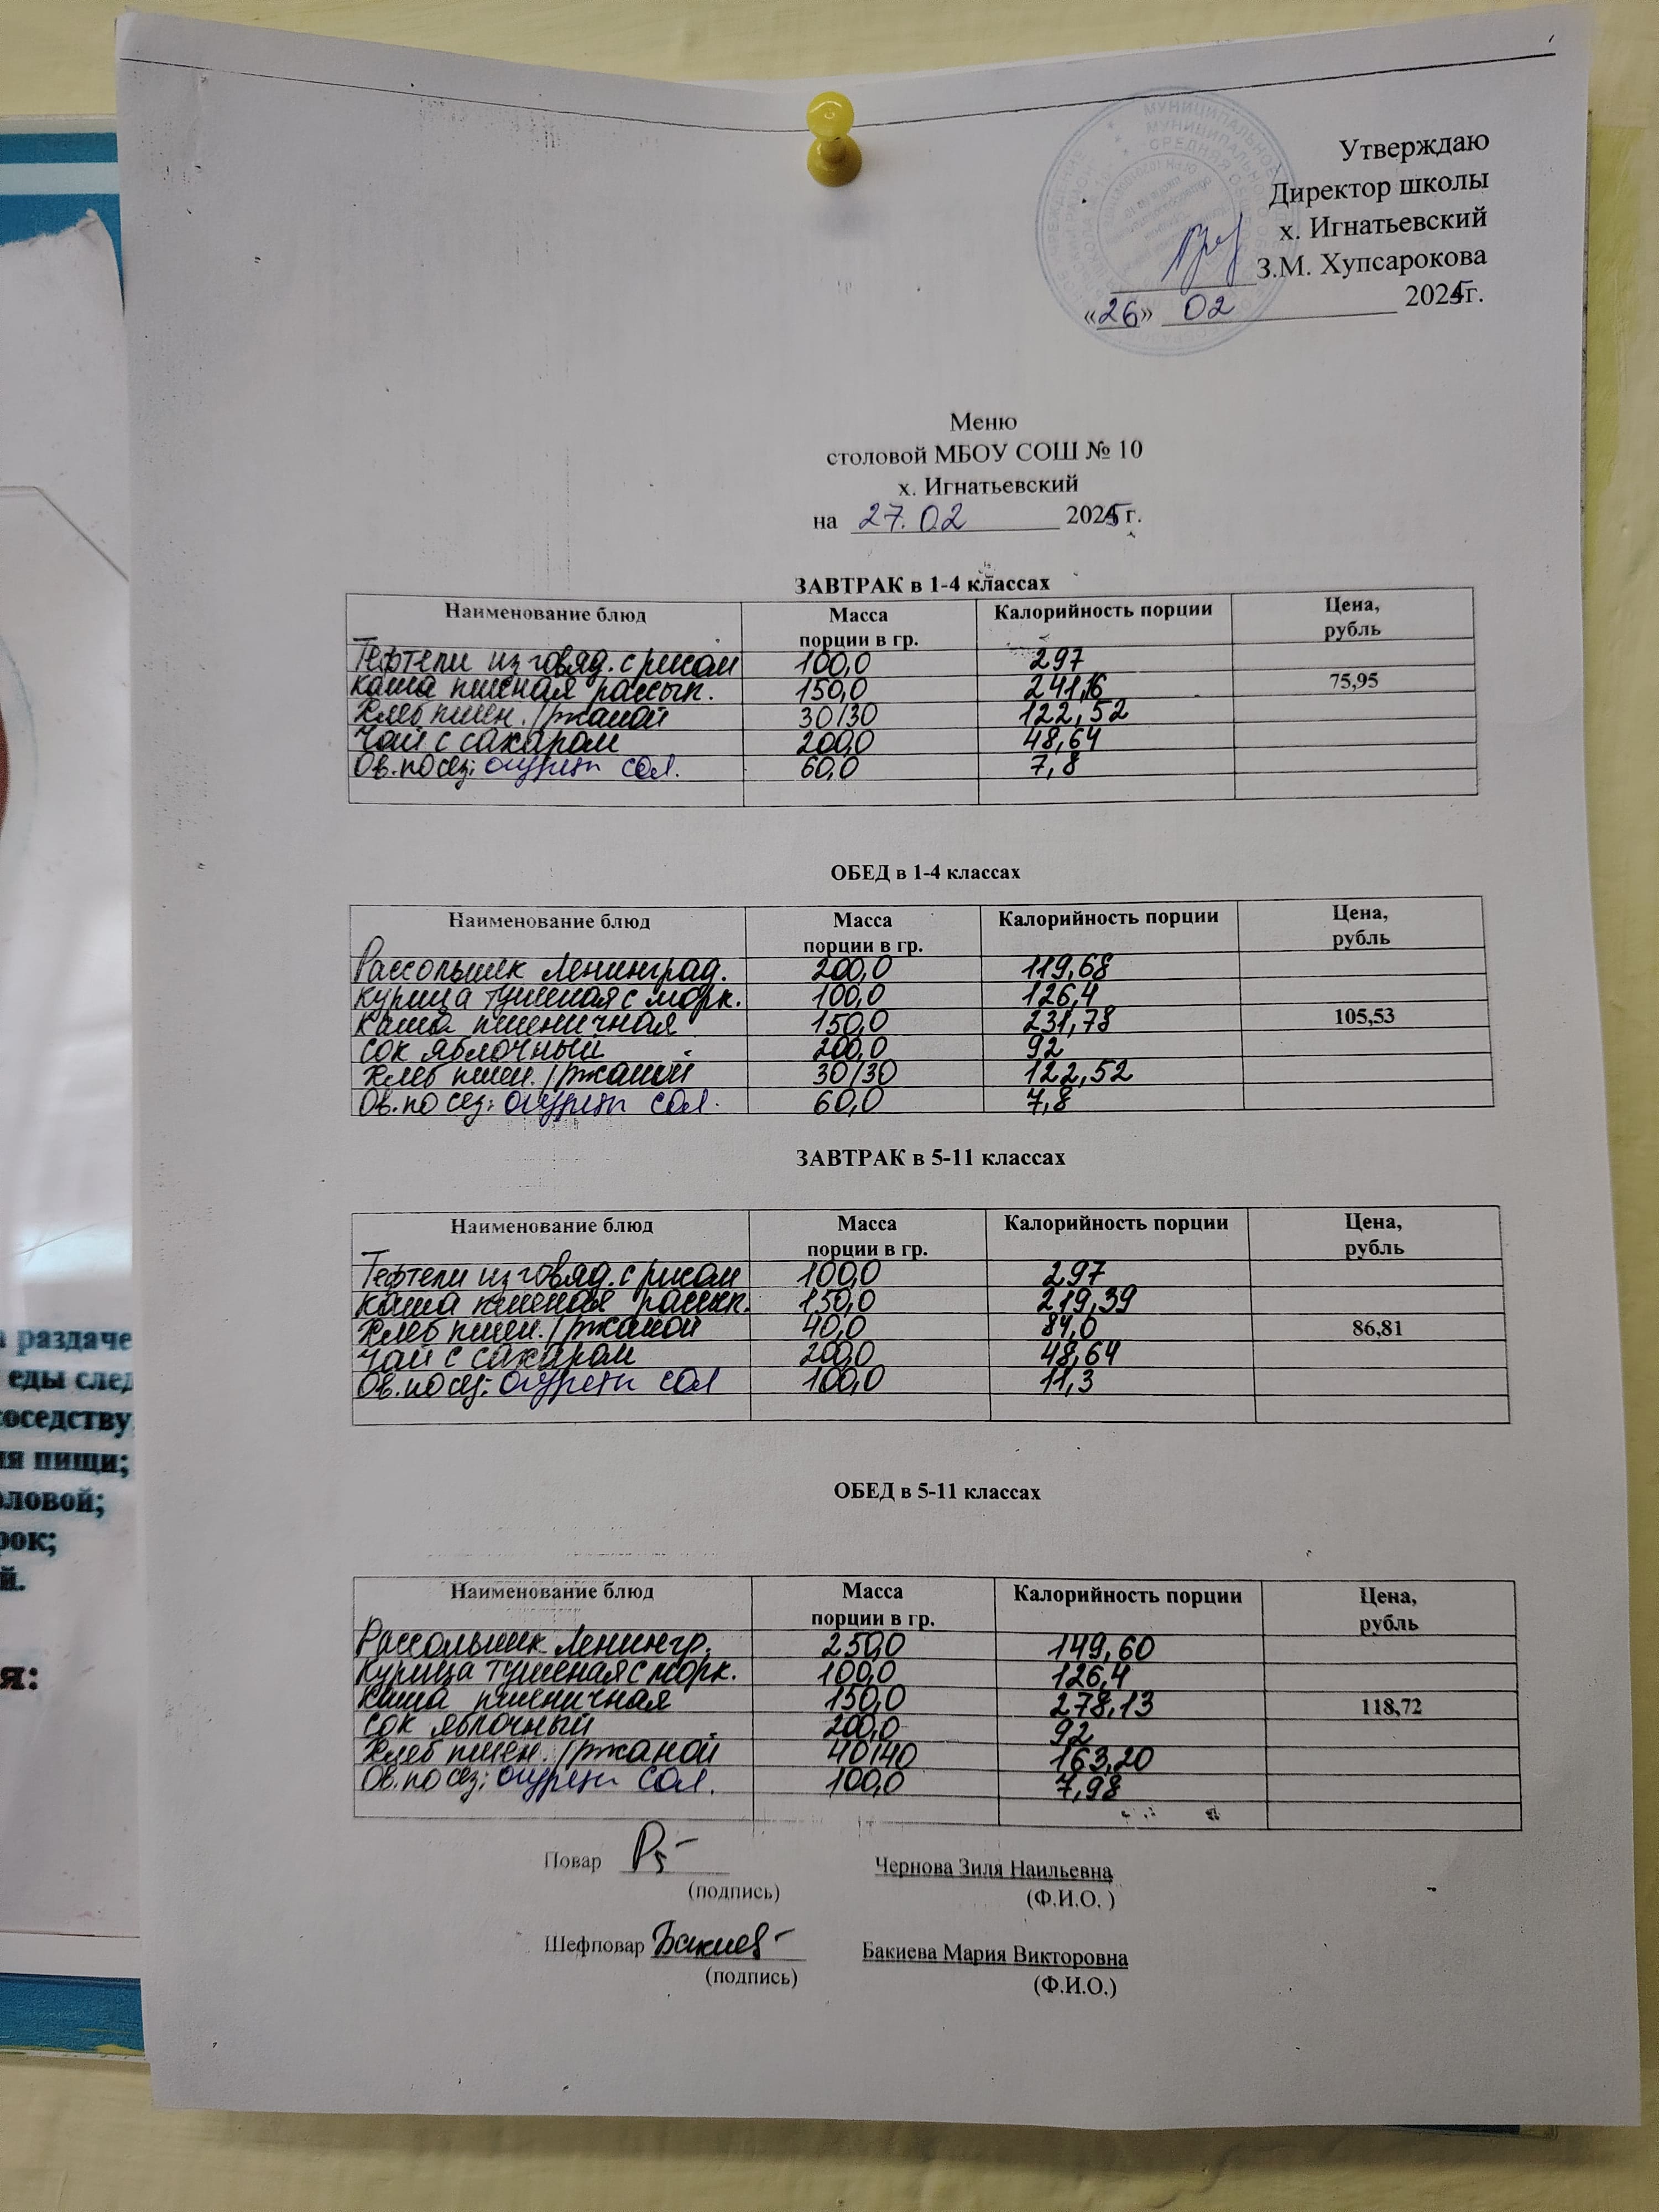 Утверждаю
Директор школы
х. Игнатьевский
З.М. Хупсарокова
«26» 02 2025г.
Меню
столовой МБОУ СОШ № 10
х. Игнатьевский
на 27.02 2025 г.
ЗАВТРАК в 1-4 классах
Наименование блюд Масса порции в гр. Калорийность порции Цена, рубль
Тефтели из говяд. с рисом 100,0 297
Каша пшеная рассып. 150,0 241,16 75,95
Хлеб пшен./ржаной 30/30 122,52
Чай с сахаром 200,0 48,64
Ов. по сез: огурец сол. 60,0 7,8
ОБЕД в 1-4 классах
Наименование блюд Масса порции в гр. Калорийность порции Цена, рубль
Рассольник Ленинград. 200,0 119,68
Курица тушеная с морк. 100,0 126,4
Каша пшеничная 150,0 231,78 105,53
Сок яблочный 200,0 92
Хлеб пшен./ржаной 30/30 122,52
Ов. по сез: огурец сол. 60,0 7,8
ЗАВТРАК в 5-11 классах
Наименование блюд Масса порции в гр. Калорийность порции Цена, рубль
Тефтели из говяд. с рисом 100,0 297
Каша пшеная рассып. 150,0 219,39
Хлеб пшен./ржаной 40,0 84,0 86,81
Чай с сахаром 200,0 48,64
Ов. по сез: огурец сол 100,0 11,3
ОБЕД в 5-11 классах
Наименование блюд Масса порции в гр. Калорийность порции Цена, рубль
Рассольник Ленингр. 250,0 149,60
Курица тушеная с морк. 100,0 126,4
Каша пшеничная 150,0 278,13 118,72
Сок яблочный 200,0 92
Хлеб пшен./ржаной 40/40 163,20
Ов. по сез: огурец сол. 100,0 7,98
Повар Чернова Зиля Наильевна
(подпись) (Ф.И.О. )
Шефповар Бакиев Бакиева Мария Викторовна
(подпись) (Ф.И.О.)
раздаче
еды
соседству
пищи;